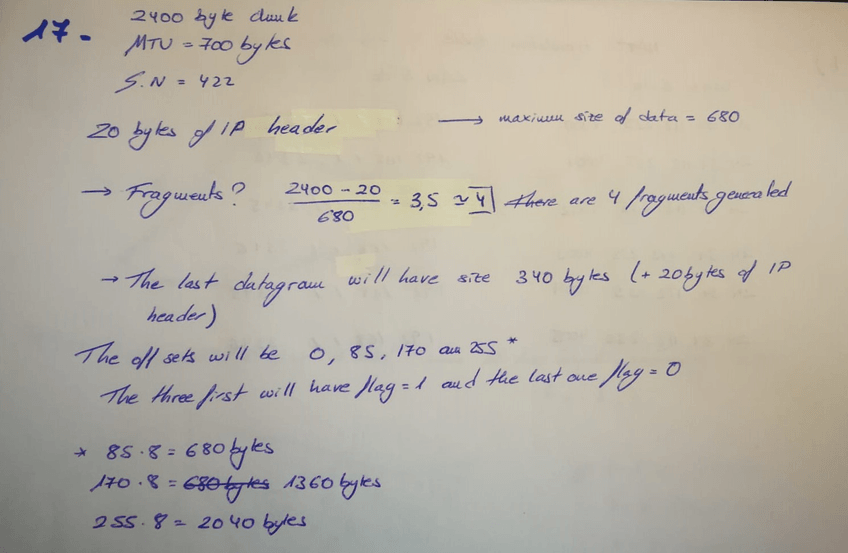 17-
2400 byte chunk
MTU = 700 bytes
S.N = 422
20 bytes of IP header → maximum size of data = 680
→ Fragments? (2400 - 20) / 680 = 3,5 ≃ 4 there are 4 fragments generated
→ The last datagram will have size 340 bytes (+ 20 bytes of IP
header)
The offsets will be 0, 85, 170 and 255 *
The three first will have flag = 1 and the last one flag = 0
* 85 · 8 = 680 bytes
170 · 8 = 680 bytes 1360 bytes
255 · 8 = 2040 bytes